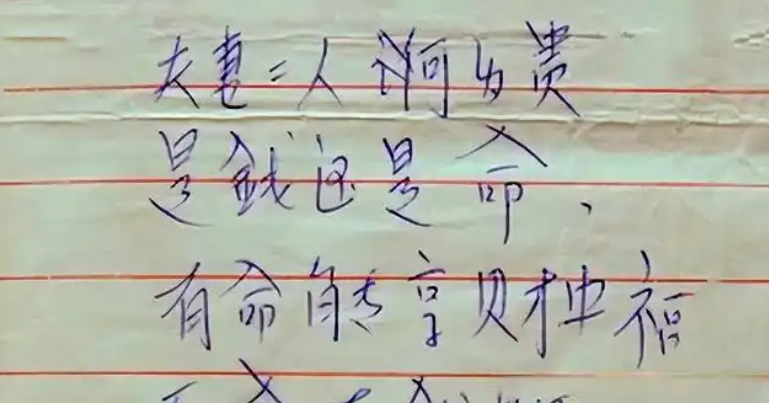 夫妻二人何为贵
是钱还是命、
有命能享财神福